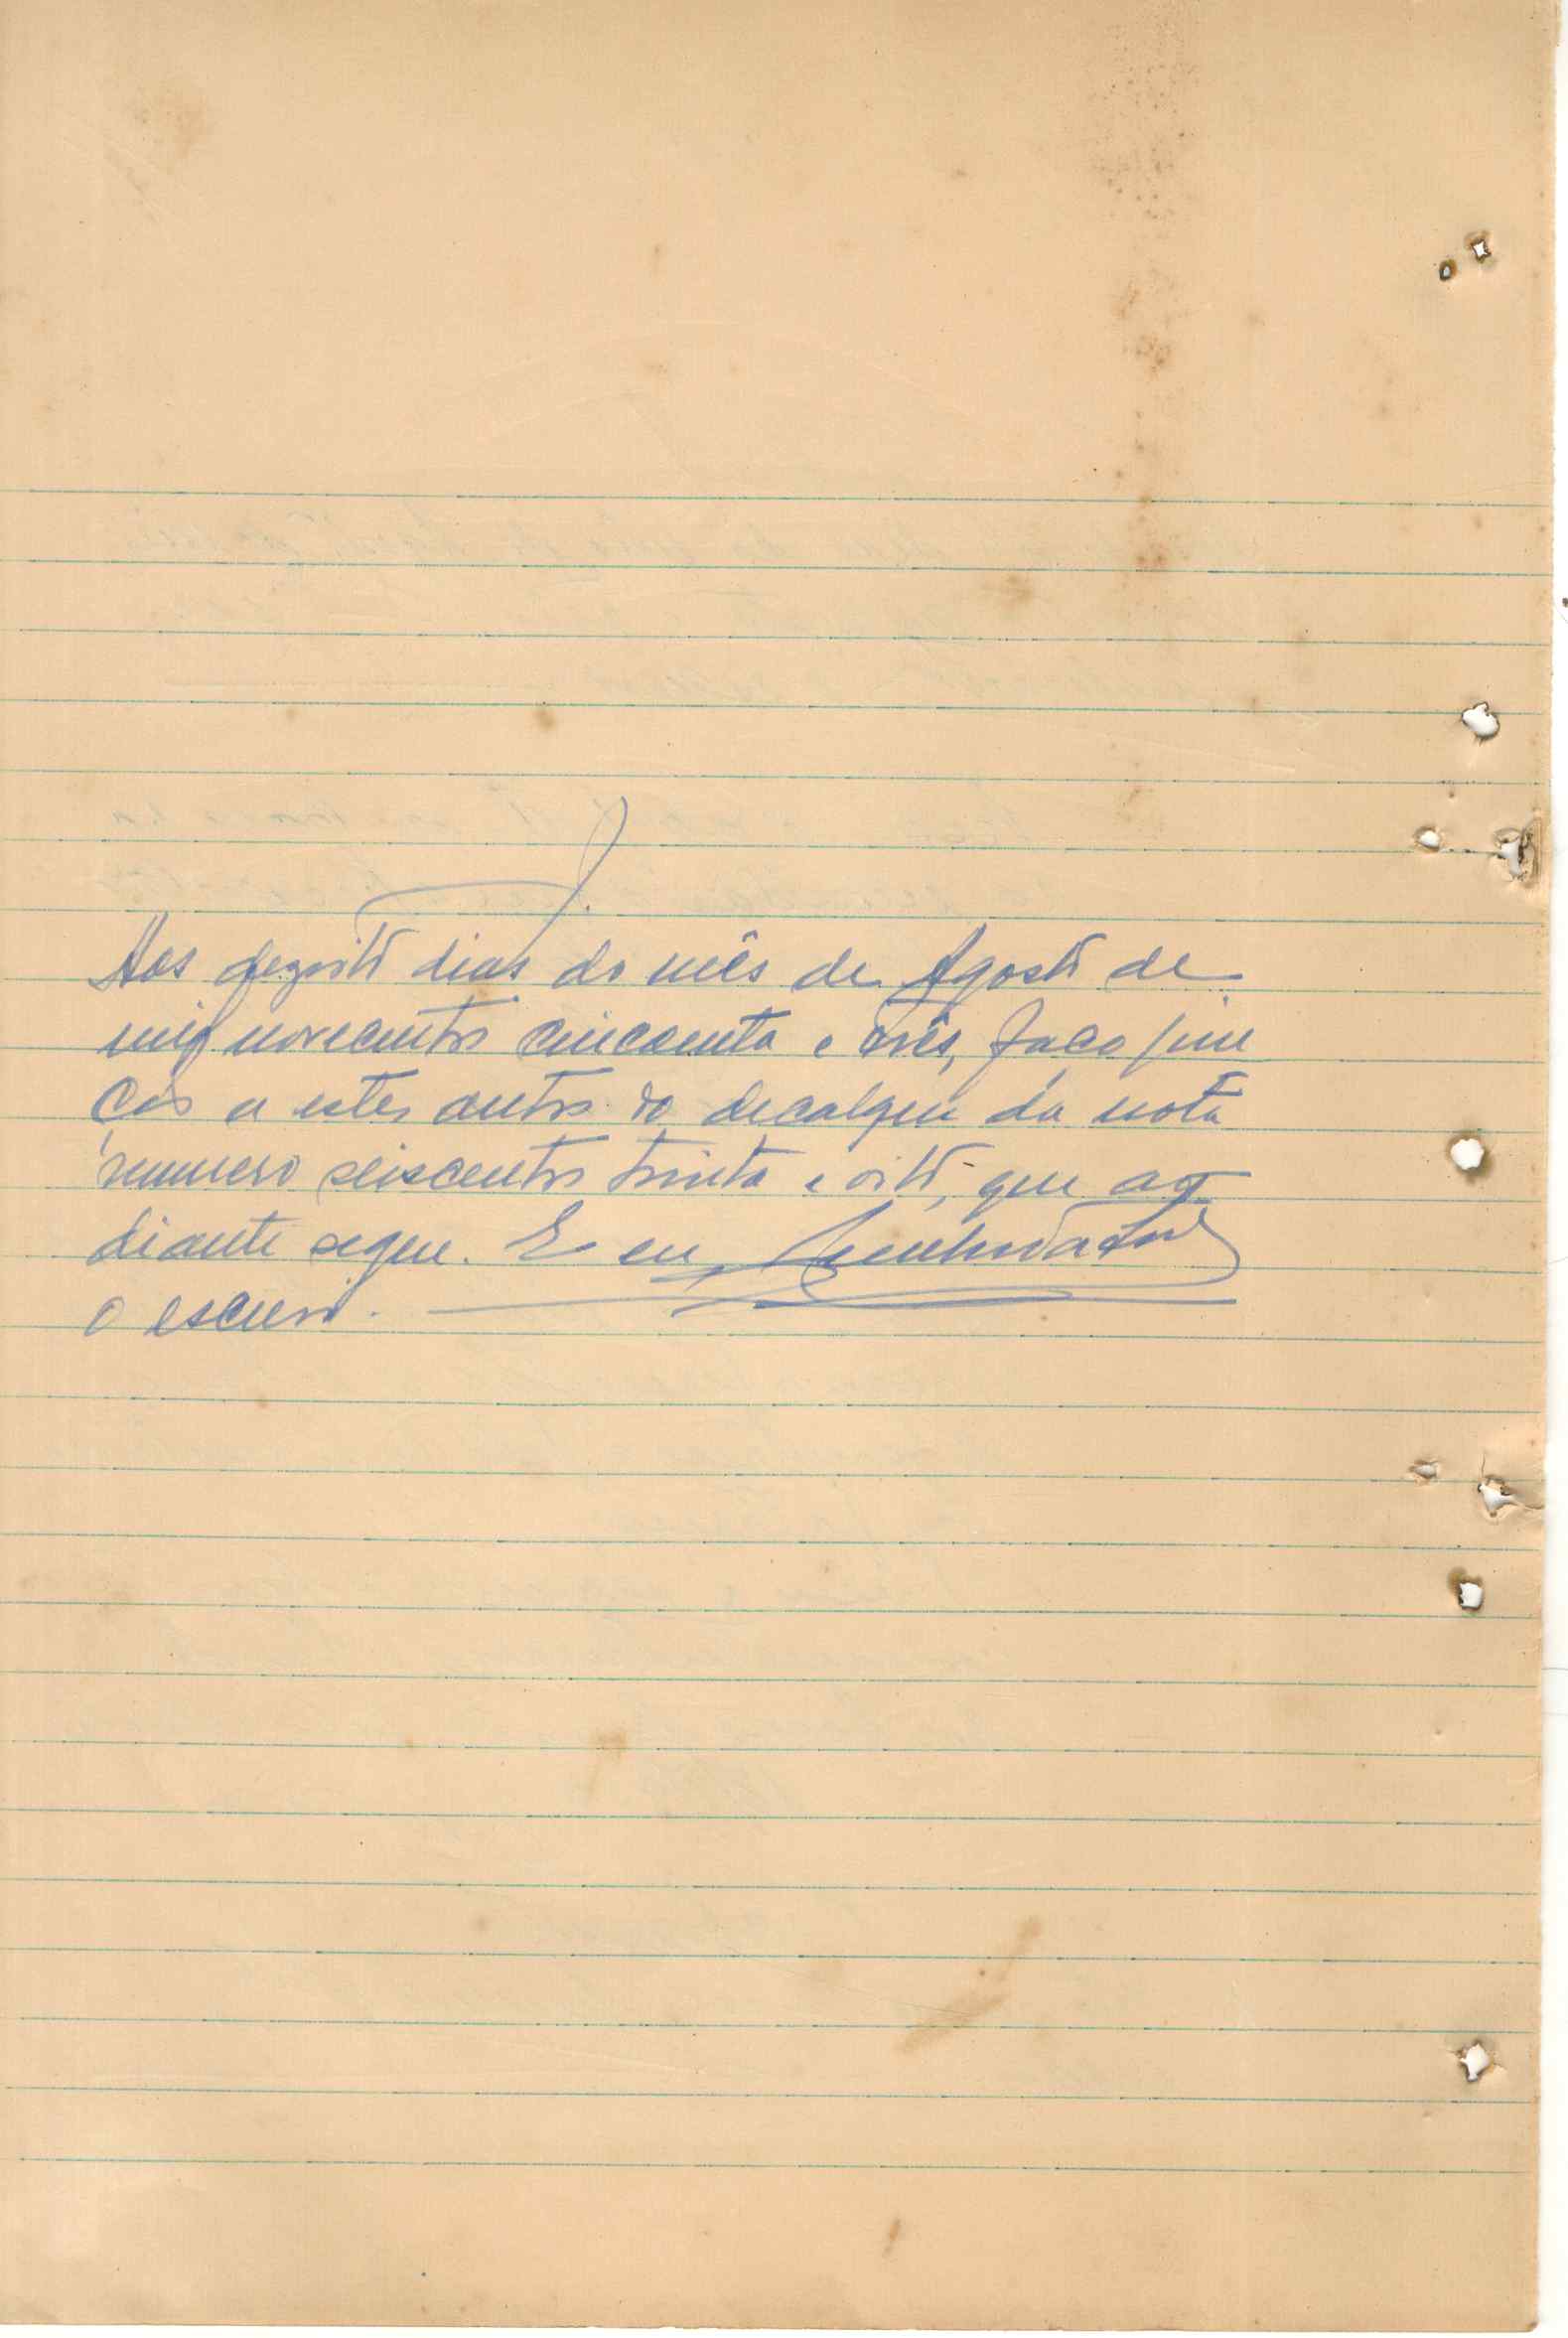 J.
Aos dezoito dias do mês de Agosto de
mil novecentos cincoenta e três, faço jun
ção a estes autos do decalque da nota
numero seiscentos trinta e oito, que a
diante segue. E eu
o escrevi.